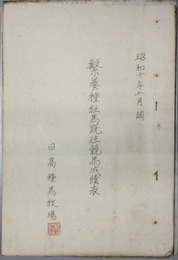 昭和十年十月調
繋養種牡馬既往競馬成績表
日高種馬牧場